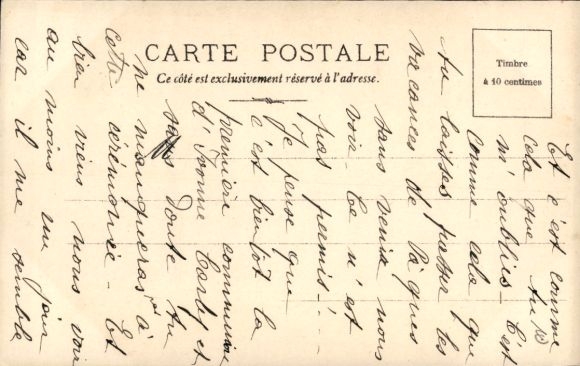 CARTE POSTALE
Ce côté est exclusivement réservé à l'adresse.
Timbre
à 10 centimes
Et c'est comme
cela que tu
m'oublies - C'est
comme cela que
tu laisses passer les
vacances de Pâques
sans venir nous
voir - Ce n'est
pas permis -!
Je pense que
c'est bientôt la
première communion
d'Yvonne et
sans doute tu
ne manqueras à
cette cérémonie - Et
bien viens nous voir
au moins un jour
car il me semble